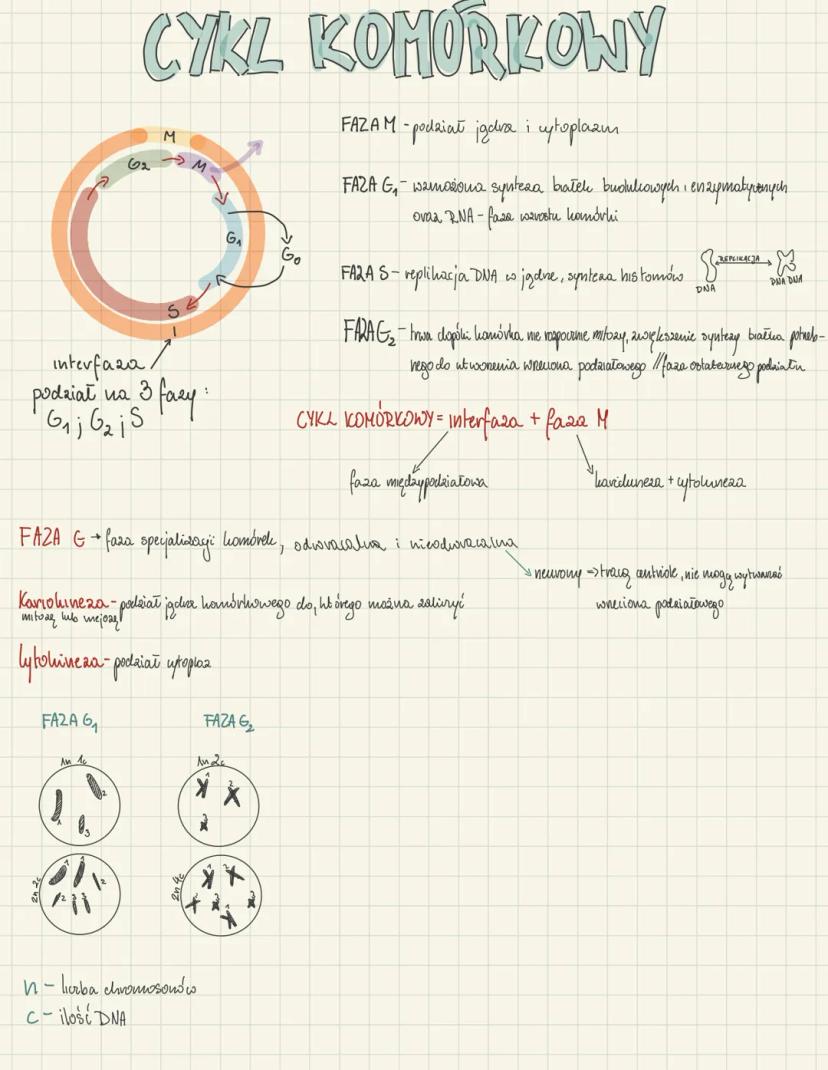 CYKL KOMÓRKOWY
M
G₂
M
G₁
G₀
S
I
interfaza
podział na 3 fazy:
G₁; G₂; S
FAZA M - podział jądra i cytoplazm
FAZA G₁ - wzmożona synteza białek budulcowych i enzymatycznych
oraz RNA - faza wzrostu komórki
FAZA S - replikacja DNA w jądrze, synteza histonów
REPLIKACJA
DNA
DNA DNA
FAZA G₂ - trwa dopóki komórka nie rozpocznie mitozy, zwiększenie syntezy białka potrzeb-
nego do utworzenia wrzeciona podziałowego // faza ostatecznego podziału
CYKL KOMÓRKOWY = interfaza + faza M
faza międzypodziałowa
kariokineza + cytokineza
FAZA G → faza specjalizacji komórek, odwracalna i nieodwracalna
neurony => tracą centriole, nie mogą wytwarzać
wrzeciona podziałowego
Kariokineza - podział jądra komórkowego do, którego można zaliczyć
mitozę lub mejozę
Cytokineza - podział cytoplaz
FAZA G₁
FAZA G₂
1n 1c
1n 2c
1
2
3
1
2
3
2n 2c
2n 4c
n - liczba chromosomów
c - ilość DNA